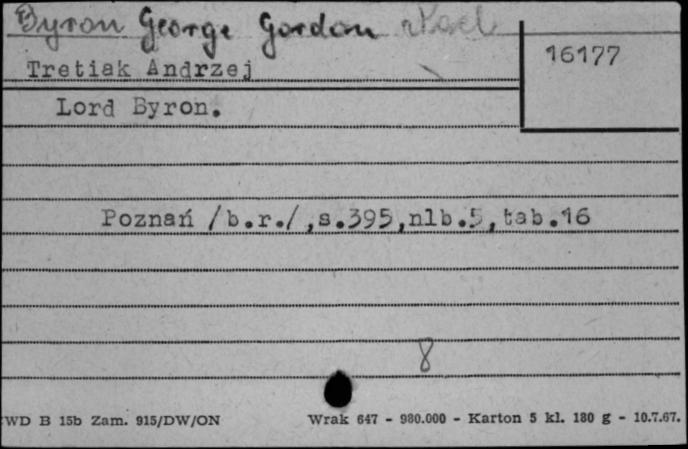 Byron George Gordon
16177
Tretiak Andrzej
Lord Byron.
Poznań /b.r./,s.395,nlb.5,tab.16
8
WD B 15b Zam. 915/DW/ON Wrak 647 - 980.000 - Karton 5 kl. 180 g - 10.7.67.